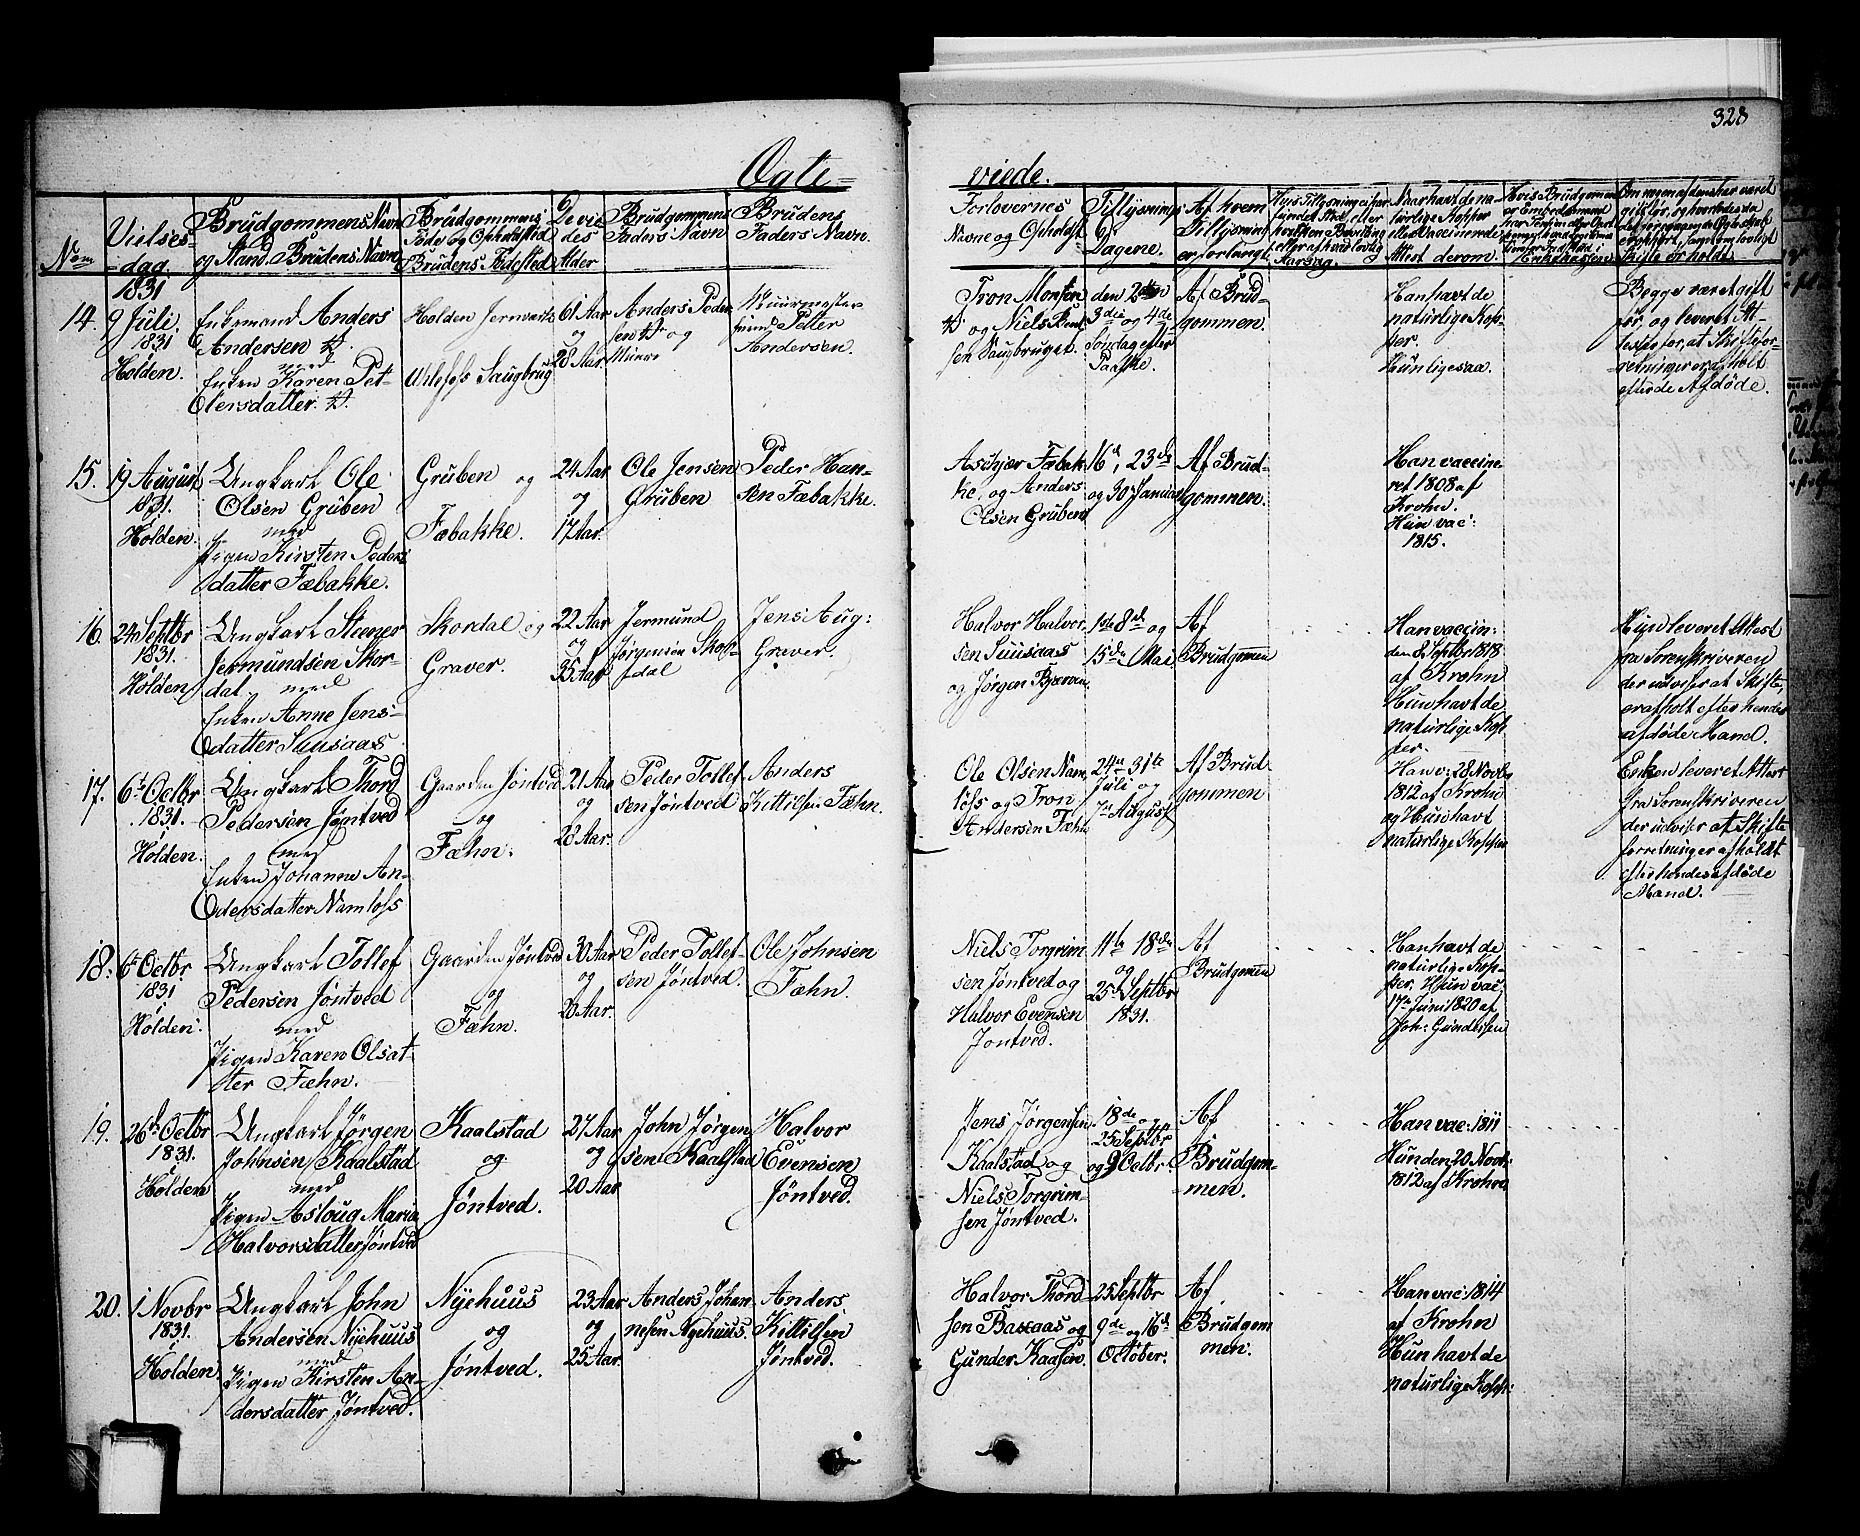 328
Ægte=
viede.
Num.
Vielses-
dag.
Brudgommens Navn
og Stand. Brudens Navn
Brudgommens
Føde og Opholdsted
Brudens Fødested
De vie
des
Alder
Brudgommens
Faders Navn
Brudens
Faders Navn.
Forlovernes
Navne og Opholdst.
Tillysnings
Dagene.
Af hvem
Tillysning
er forlangt.
Naar havt de na-
turlige Kopper
eller Vaccinerede
Attest derom.
1831
14.
9 Juli.
1831
i
Holden.
Enkemand Anders
Andersen
med
Enken Karen Pet-
tersdatter.
Holden Jernværk
og
Ulefoss Saugbrug
61 Aar
og
28 Aar.
Anders Peder
sen
og
Muurmester
svend Petter
Andersen.
Tron Monsen
og Niels Bent
sen Saugbruget.
den 2den
3die og 4de
Søndag efter
Paaske.
Af Brud-
gommen.
Han havt de
naturlige Kop-
per.
Hun ligesaa.
Begge været gift
før, og leveret At-
tester for, at Skiftefor-
retninger er afholt
efter de Afdøde.
15.
19 August
1831.
i
Holden.
Ungkarl Ole
Olsen Gruben
med
Pigen Kirsten Peders
datter Fæbakke.
Gruben og
Fæbakke.
24 Aar
og
17 Aar.
Ole Jensen
Gruben
Peder Han-
sen Fæbakke.
Aslxjær Fæbak
ke, og Anders
Olsen Gruben
16d, 23de
og 30te Januar
Af Brud-
gommen.
Han vaccine-
ret 1808 af
Krohn.
Hun vac:
1815.
16.
24 Septbr
1831.
i
Holden
Ungkarl Steener
Jermundsen Skor-
dal, med
Enken Anne Jens-
datter Suusaas
Skordal og
Graver.
22 Aar
og
35 Aar
Jermund
Jørgensen Skor-
dal
Jens Aug:
Graver.
Halvor Halvor
sen Suusaas
og Jørgen Bjerva
1ste 8de og
15de Mai
Af
Brudgomen
Han vaccin:
den 8 Septbr 1813
af Krohn
Hun havt de
naturlige Kop
per.
Hun leveret Attest
fra Sorenskriveren
der udviser at Skifte,
er afholt efter hendes
afdøde Mand.
17.
6t Octbr
1831.
i
Holden.
Ungkarl Thord
Pedersen Jøntved
med
Enken Johanne An-
dersdatter Namløss
Gaarden Jøntved
og
Fæhn.
21 Aar
og
28 Aar.
Peder Tollef-
sen Jøntved
Anders
Kittilsen Fæhn.
Ole Olsen Nam
løss og Tron
Andersen Fæhn
24de 31te
Juli og
7de August
Af Brud-
gommen
Han v: 28 Novbr
1812 af Krohn
og Hun havt
naturlige Kopper
Enken leveret Attest
fra Sorenskriveren
der udviser at Skifte
forretninger afholdt
efter hendes afdøde
Mand.
18.
6t Octbr
1831
i
Holden.
Ungkarl Tollef
Pedersen Jøntved
med
Pigen Karen Olsdat-
ter Fæhn.
Gaarden Jøntved
og
Fæhn.
30 Aar
og
20 Aar.
Peder Tollef-
sen Jøntved.
Ole Johnsen
Fæhn.
Niels Torgrim
sen Jøntved og
Halvor Evensen
Jøntved.
11te 18de
og
25de Septbr
1831.
Af
Brudgomen
Han havt de
naturlige Kop-
per. Hun vac:
17de Juni 1820 af
Joh: Gundersen
19.
26de Octbr
1831.
i
Holden
Ungkarl Jørgen
Johnsen Kaalstad
med
Pigen Asloug Maria
Halvorsdatter Jøntved
Kaalstad
og
Jøntved.
27 Aar
og
20 Aar.
John Jørgen
sen Kaalstad
Halvor
Evensen
Jøntved.
Jens Jørgensen
Kaalstad og
Niels Torgrim-
sen Jøntved.
18de og
25 Septbr
og 9 Octbr.
Af
Brudgom-
men.
Han vac: 1811
Hun den 20 Novbr
1812 af Krohn
20.
1 Novbr
1831.
i
Holden.
Ungkarl John
Andersen Nyehuus
med
Pigen Kirsten An-
dersdatter Jøntved.
Nyehuus
og
Jøntved.
23 Aar
og
25 Aar.
Anders Johan
nesen Nyehuus.
Anders
Kittilsen
Jøntved.
Halvor Thord
sen Baxaas og
Gunder Kaasen
25 Septbr
9de og 16de
October.
Af
Brudgom
men.
Han vac: 1814
af Krohn
Hun havt de
naturlige Kopp: